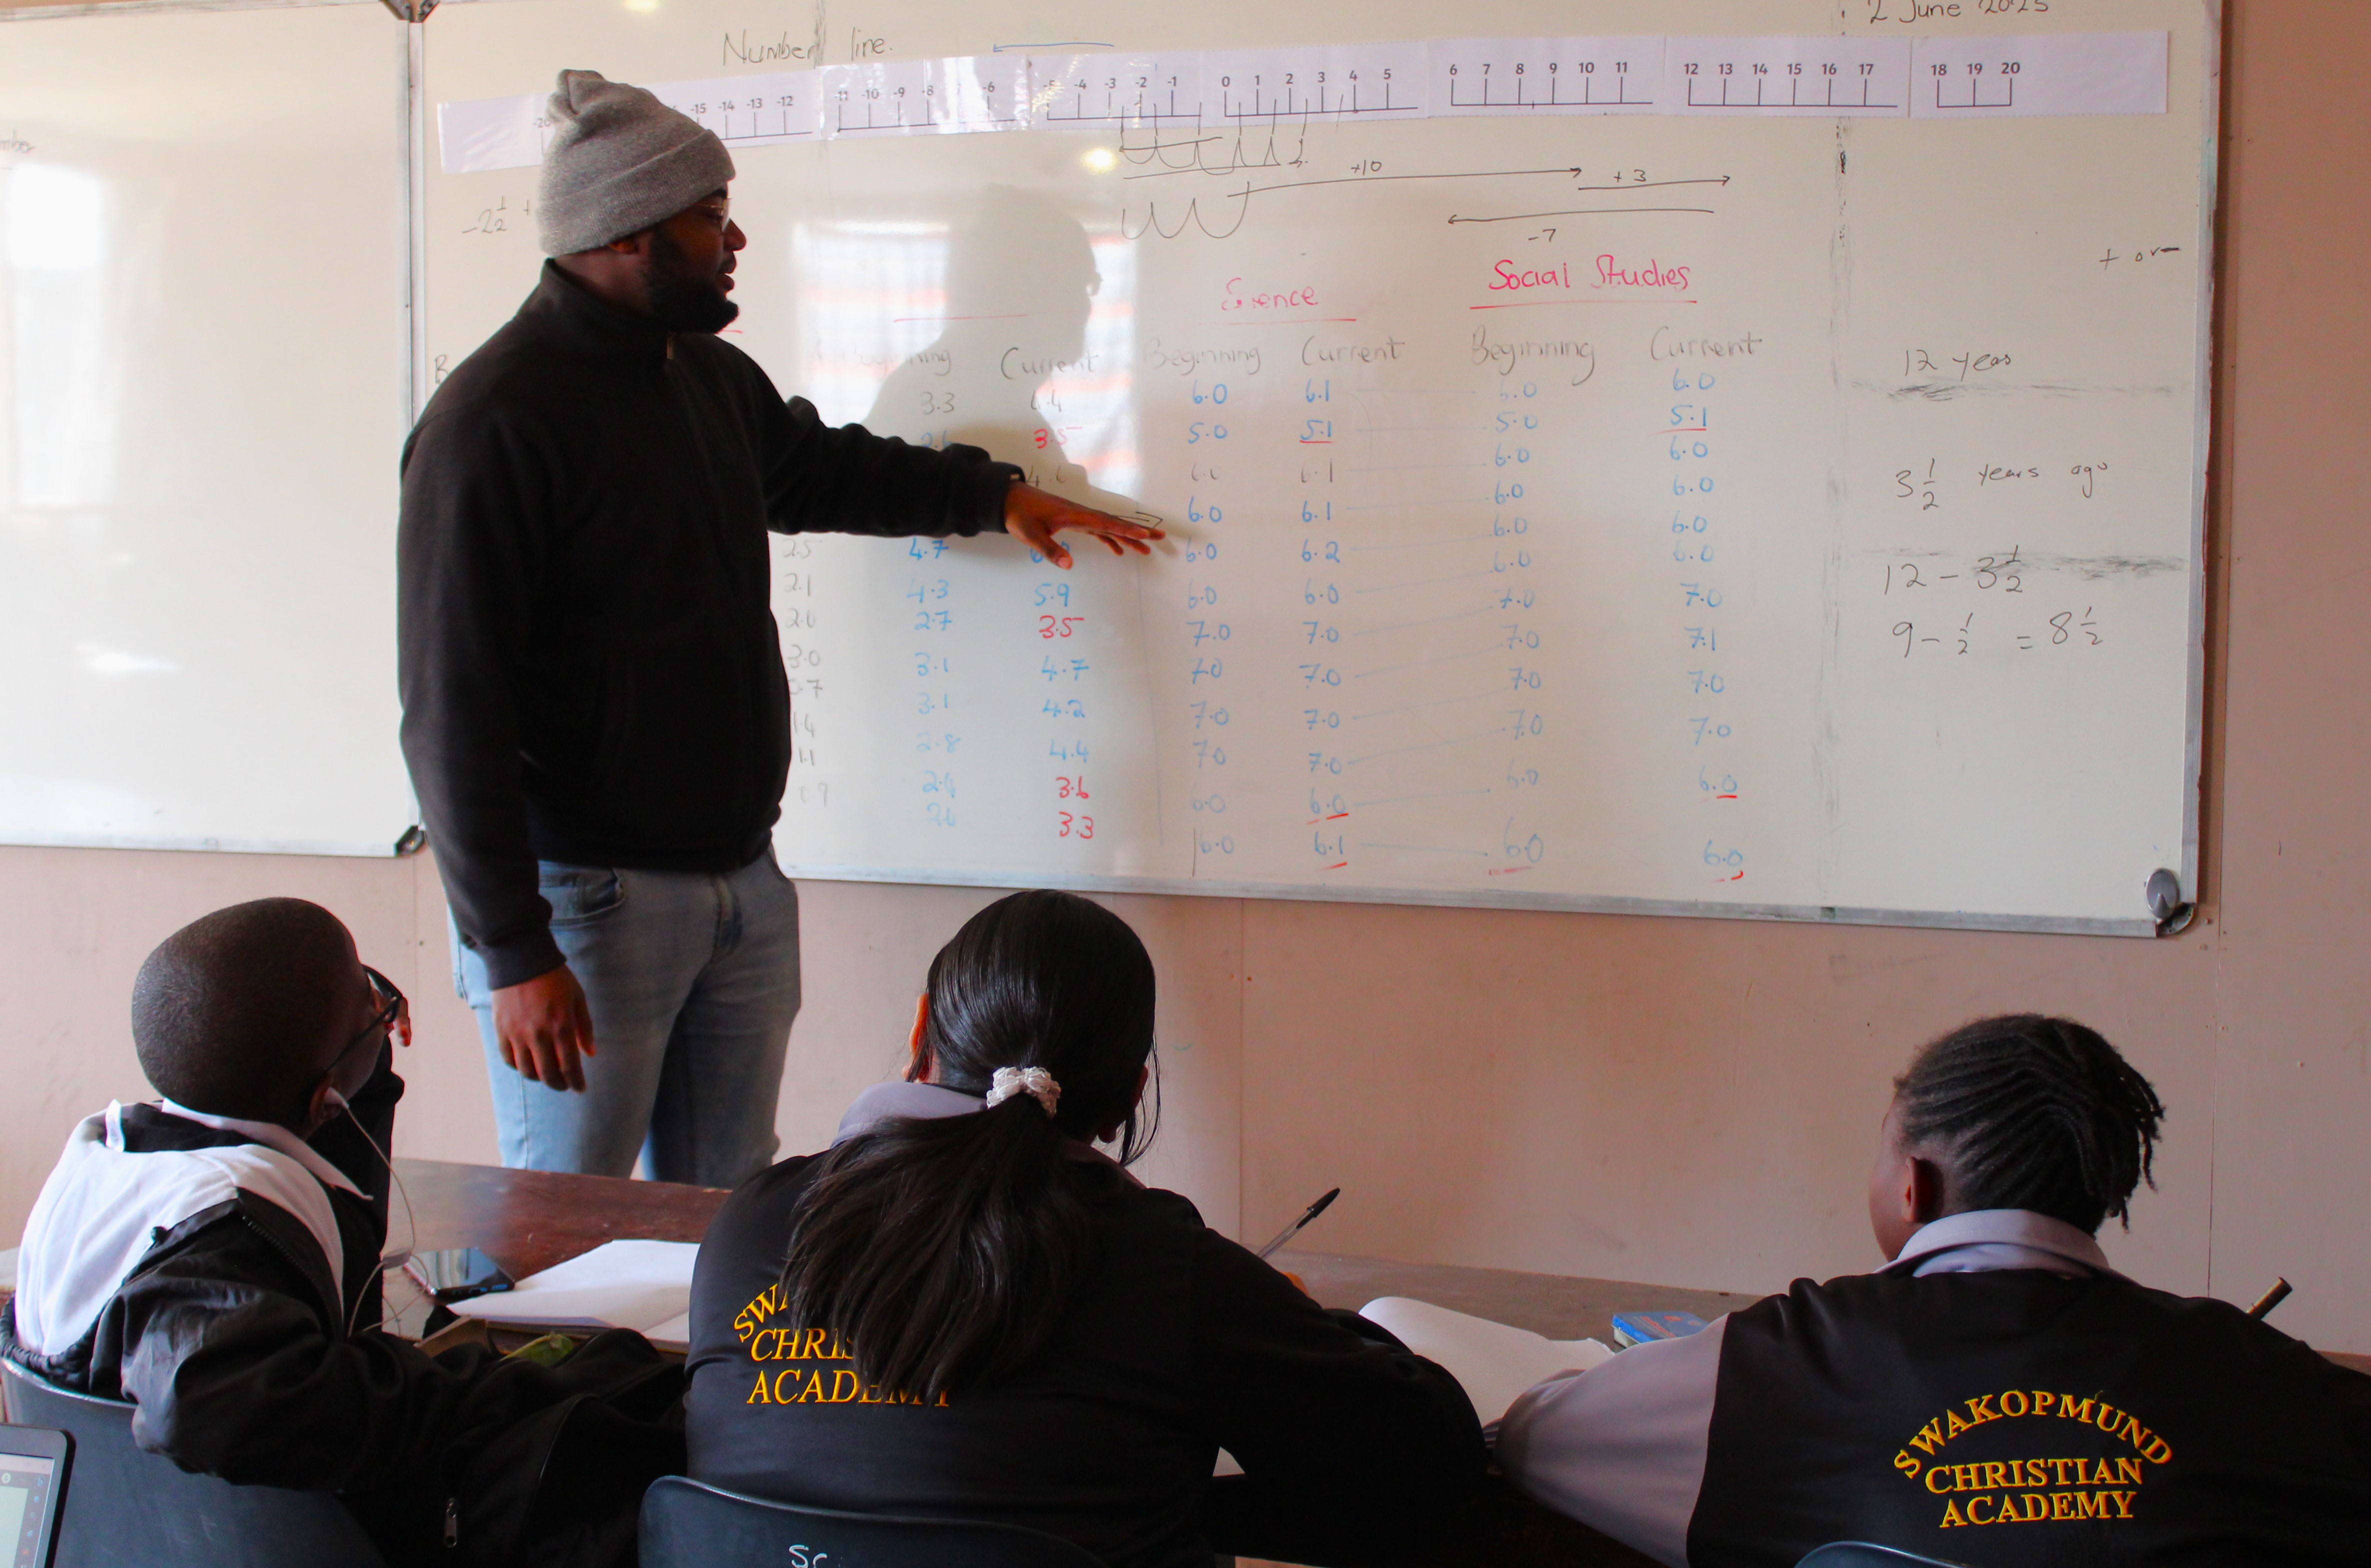 2 June 2025
Number line.
-15 -14 -13 -12 -11 -10 -9 -8 -6 -5 -4 -3 -2 -1 0 1 2 3 4 5 6 7 8 9 10 11 12 13 14 15 16 17 18 19 20
+10
+3
-7
-2 1/2 +
+ or -
Science
Social Studies
Beginning Current Beginning Current Beginning Current
3.3 4.4 6.0 6.1 6.0 6.0
3.5 5.0 5.1 5.0 5.1
4.6 6.0 6.1 6.0 6.0
6.0 6.1 6.0 6.0
2.5 4.7 6.0 6.2 6.0 6.0
2.1 4.3 5.9 6.0 6.0 6.0 6.0
2.0 2.7 3.5 7.0 7.0 7.0 7.0
3.0 3.1 4.7 7.0 7.0 7.0 7.1
3.1 4.2 7.0 7.0 7.0 7.0
1.4 2.8 4.4 7.0 7.0 7.0 7.0
1.1 3.6 6.0 6.0 6.0 6.0
3.3 6.0 6.1 6.0 6.0
12 years
3 1/2 years ago
12 - 3 1/2
9 - 1/2 = 8 1/2
ACADEMY
SWAKOPMUND
CHRISTIAN
ACADEMY
SC